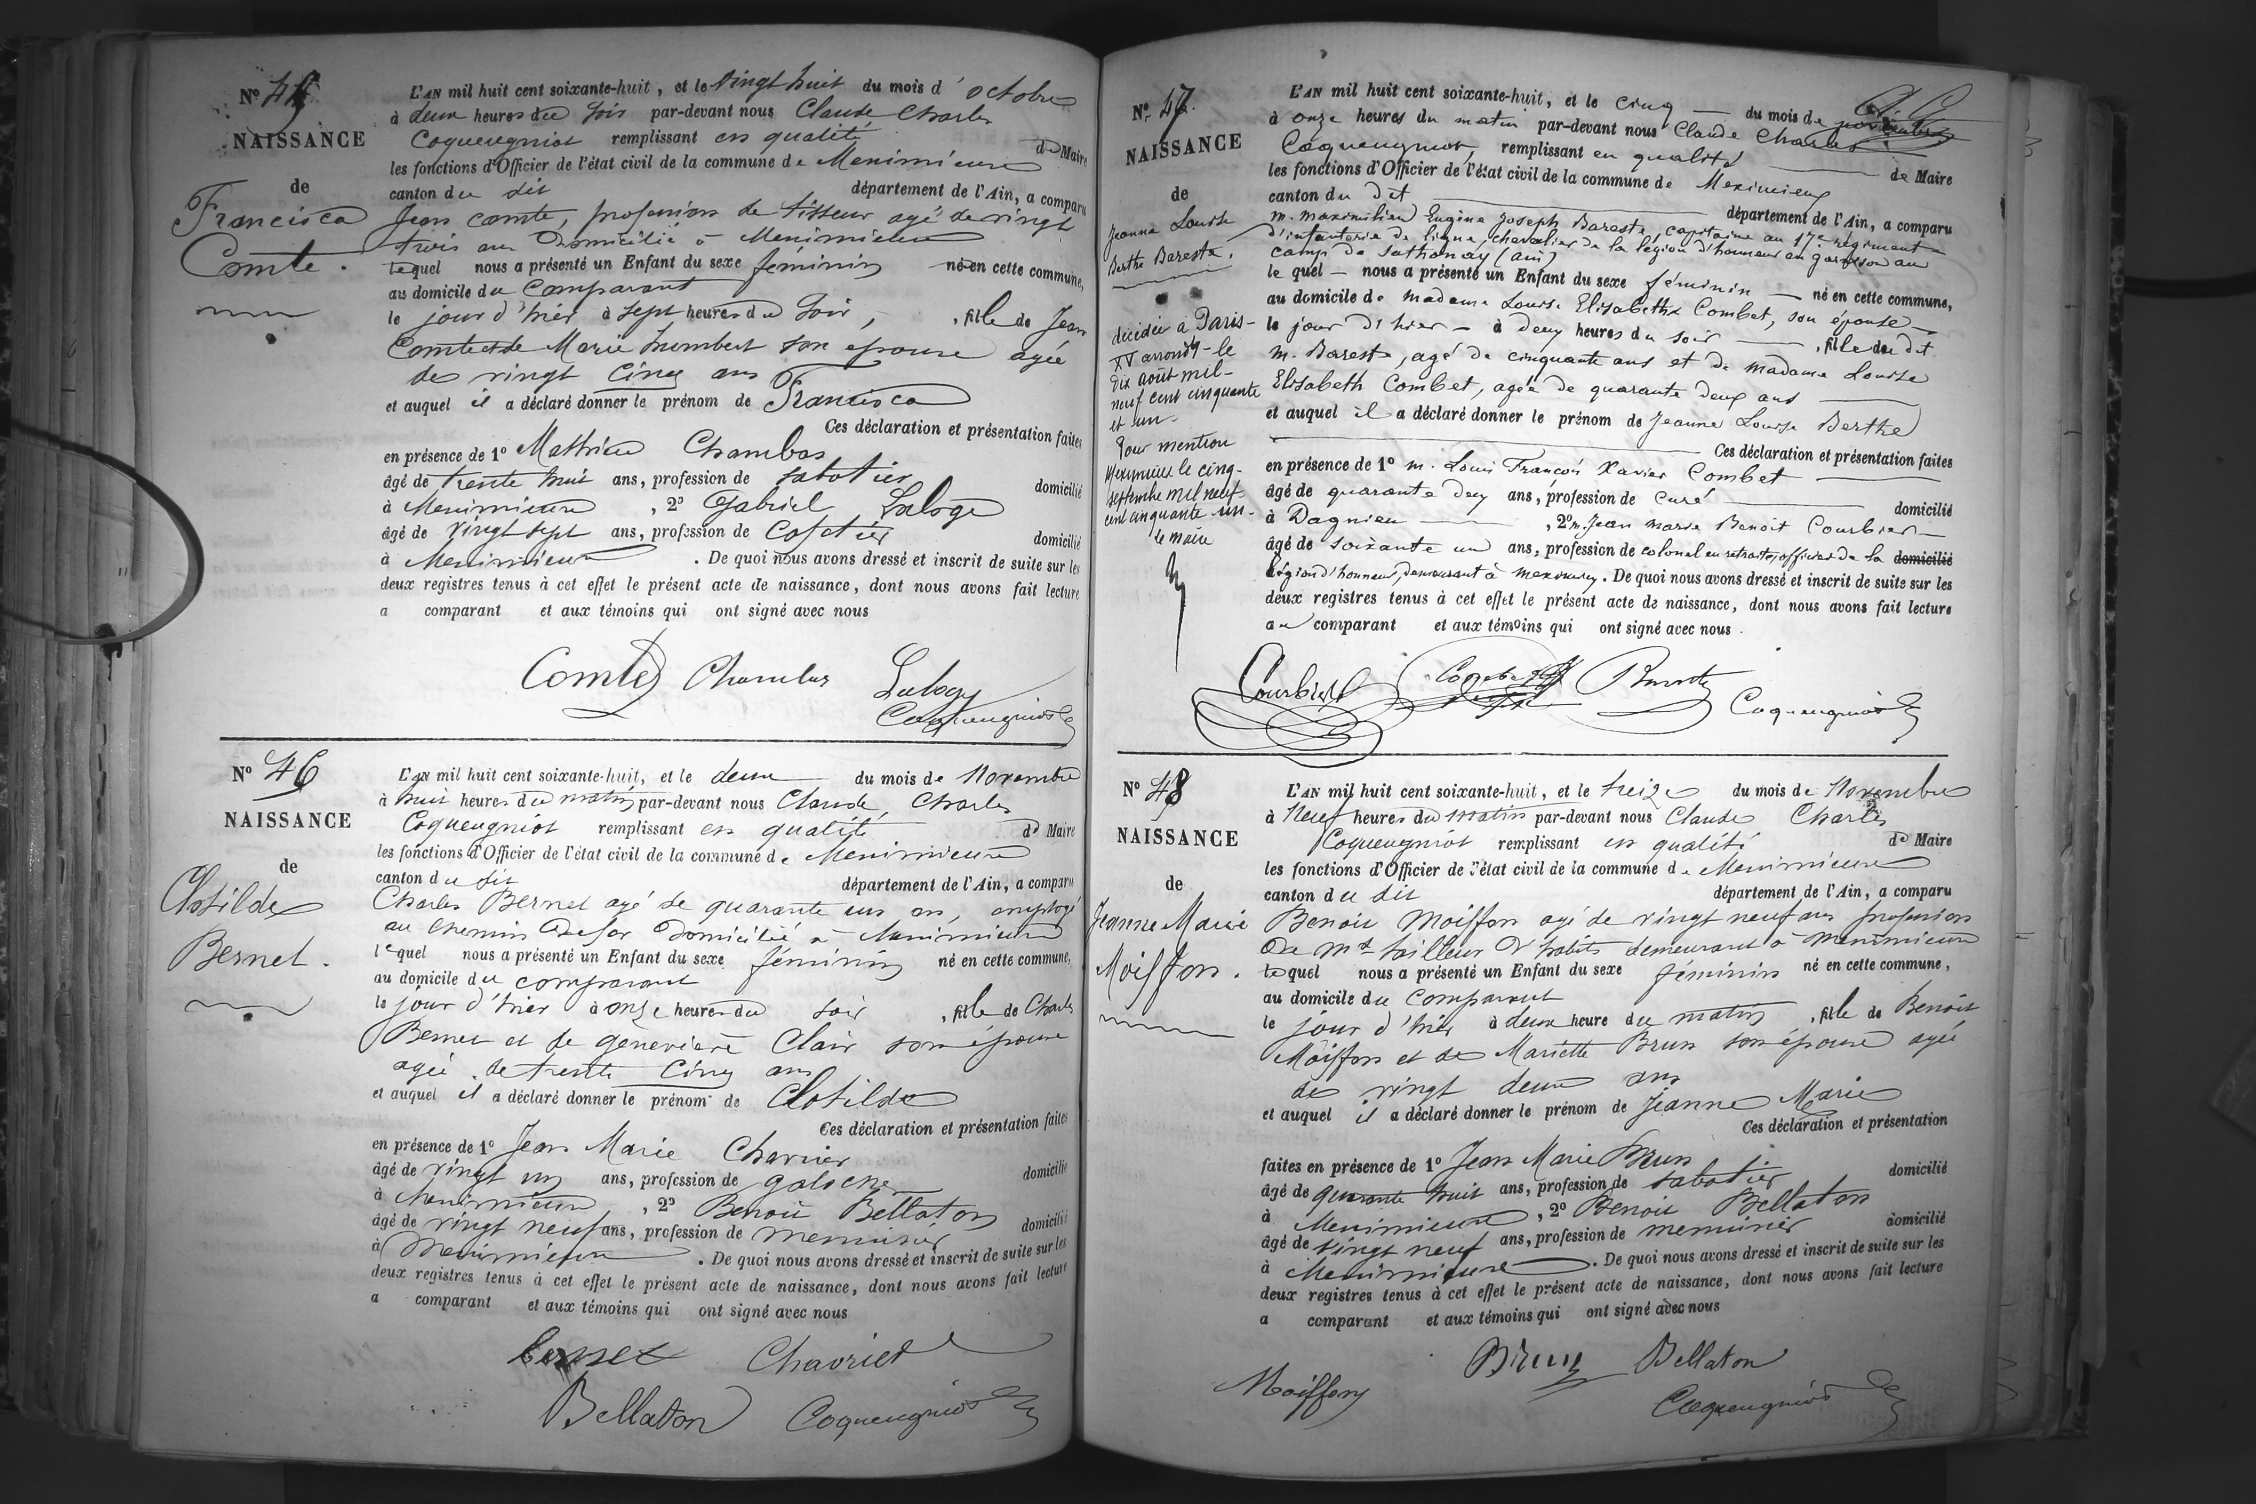 N° 45
NAISSANCE
de
Francisca
Comte.
L'AN mil huit cent soixante-huit, et le vingt huit du mois d'octobre
à deux heures du soir par-devant nous Claude Charles
Coqueugniot remplissant en qualité de Maire
les fonctions d'Officier de l'état civil de la commune de Meximieux
canton du dit département de l'Ain, a comparu
Jean Comte, profession de tisseur agé de vingt
trois ans Domicilié à Meximieux
lequel nous a présenté un Enfant du sexe féminin né en cette commune,
au domicile du comparant
le jour d'hier à sept heures du soir, fille de Jean
Comte et de Marie humbert son epouse agée
de vingt cinq ans
et auquel il a déclaré donner le prénom de Francisca
Ces déclaration et présentation faites
en présence de 1° Mathieu Chambas
âgé de trente huit ans, profession de sabotier domicilié
à Meximieux, 2° Gabriel Laloge
âgé de vingt sept ans, profession de Cafetier domicilié
à Meximieux. De quoi nous avons dressé et inscrit de suite sur les
deux registres tenus à cet effet le présent acte de naissance, dont nous avons fait lecture
a comparant et aux témoins qui ont signé avec nous
Comte Chambas Laloge
Coqueugniot
N° 46
NAISSANCE
de
Clotilde
Bernet.
L'AN mil huit cent soixante-huit, et le deux du mois de Novembre
à huit heures du matin par-devant nous Claude, Charles
Coqueugniot remplissant en qualité de Maire
les fonctions d'Officier de l'état civil de la commune de Meximieux
canton du dit département de l'Ain, a comparu
Charles Bernet agé de quarante un an, employé
au chemin de fer Domicilié à Meximieux
lequel nous a présenté un Enfant du sexe féminin né en cette commune,
au domicile du comparant
le jour d'hier à onze heures du soir, fille de Charles
Bernet et de génevieve Clair son épouse
agée de trente cinq ans
et auquel il a déclaré donner le prénom de Clotilde
Ces déclaration et présentation faites
en présence de 1° Jean Marie Charrier
âgé de vingt un ans, profession de galocher domicilié
à Meximieux, 2° Benoit Bellaton
âgé de vingt neuf ans, profession de menuisier domicilié
à Meximieux. De quoi nous avons dressé et inscrit de suite sur les
deux registres tenus à cet effet le présent acte de naissance, dont nous avons fait lecture
a comparant et aux témoins qui ont signé avec nous
Bernet
Bellaton Coqueugniot
N° 47.
NAISSANCE
de
Jeanne Louise
Berthe Bareste.
décédée à Paris-
XV arrondt - le
dix août mil-
neuf cent cinquante
et un-
Pour mention
Meximieux le cinq-
septembre mil neuf
cent cinquante un-
le maire
L'AN mil huit cent soixante-huit, et le cinq du mois de novembre
à onze heures du matin par-devant nous Claude Charles
Coqueugniot, remplissant en qualité de Maire
les fonctions d'Officier de l'état civil de la commune de Meximieux
canton du dit département de l'Ain, a comparu
m. maximilien Eugène Joseph Bareste, capitaine au 17e régiment
d'infanterie de ligne, chevalier de la légion d'honneur en garnison au
camp de Sathonay (ain)
le quel nous a présenté un Enfant du sexe féminin né en cette commune,
au domicile de madame Louise Elisabeth Combet, son épouse
le jour d'hier à deux heures du soir, fille du dit
m. Bareste, agé de cinquante ans et de madame Louise
Elisabeth Combet, agée de quarante deux ans
et auquel il a déclaré donner le prénom de Jeanne Louise Berthe
Ces déclaration et présentation faites
en présence de 1° m. Louis François Xavier Combet
âgé de quarante deux ans, profession de curé domicilié
à Dagnieu, 2° m. Jean Marie Benoit Courbier
âgé de soixante un ans, profession de colonel en retraite, officier de la domicilié
légion d'honneur, demeurant à meximieux. De quoi nous avons dressé et inscrit de suite sur les
deux registres tenus à cet effet le présent acte de naissance, dont nous avons fait lecture
au comparant et aux témoins qui ont signé avec nous.
Courbier Combet Bareste Coqueugniot
N° 48
NAISSANCE
de
Jeanne Marie
Moiffon.
L'AN mil huit cent soixante-huit, et le treize du mois de Novembre
à Neuf heures du matin par-devant nous Claude Charles
Coqueugniot remplissant en qualité de Maire
les fonctions d'Officier de l'état civil de la commune de Meximieux
canton du dit département de l'Ain, a comparu
Benoit Moiffon agé de vingt neuf ans profession
De md tailleur d'habits demeurant à Meximieux
lequel nous a présenté un Enfant du sexe féminin né en cette commune,
au domicile du comparant
le jour d'hier à deux heure du matin, fille de Benoit
Moiffon et de Mariette Brun son épouse agée
de vingt deux ans
et auquel il a déclaré donner le prénom de Jeanne Marie
Ces déclaration et présentation
faites en présence de 1° Jean Marie Brun
âgé de quarante huit ans, profession de sabotier domicilié
à Meximieux, 2° Benoit Bellaton
âgé de vingt neuf ans, profession de menuisier domicilié
à Meximieux. De quoi nous avons dressé et inscrit de suite sur les
deux registres tenus à cet effet le présent acte de naissance, dont nous avons fait lecture
a comparant et aux témoins qui ont signé avec nous
Moiffon Brun Bellaton
Coqueugniot